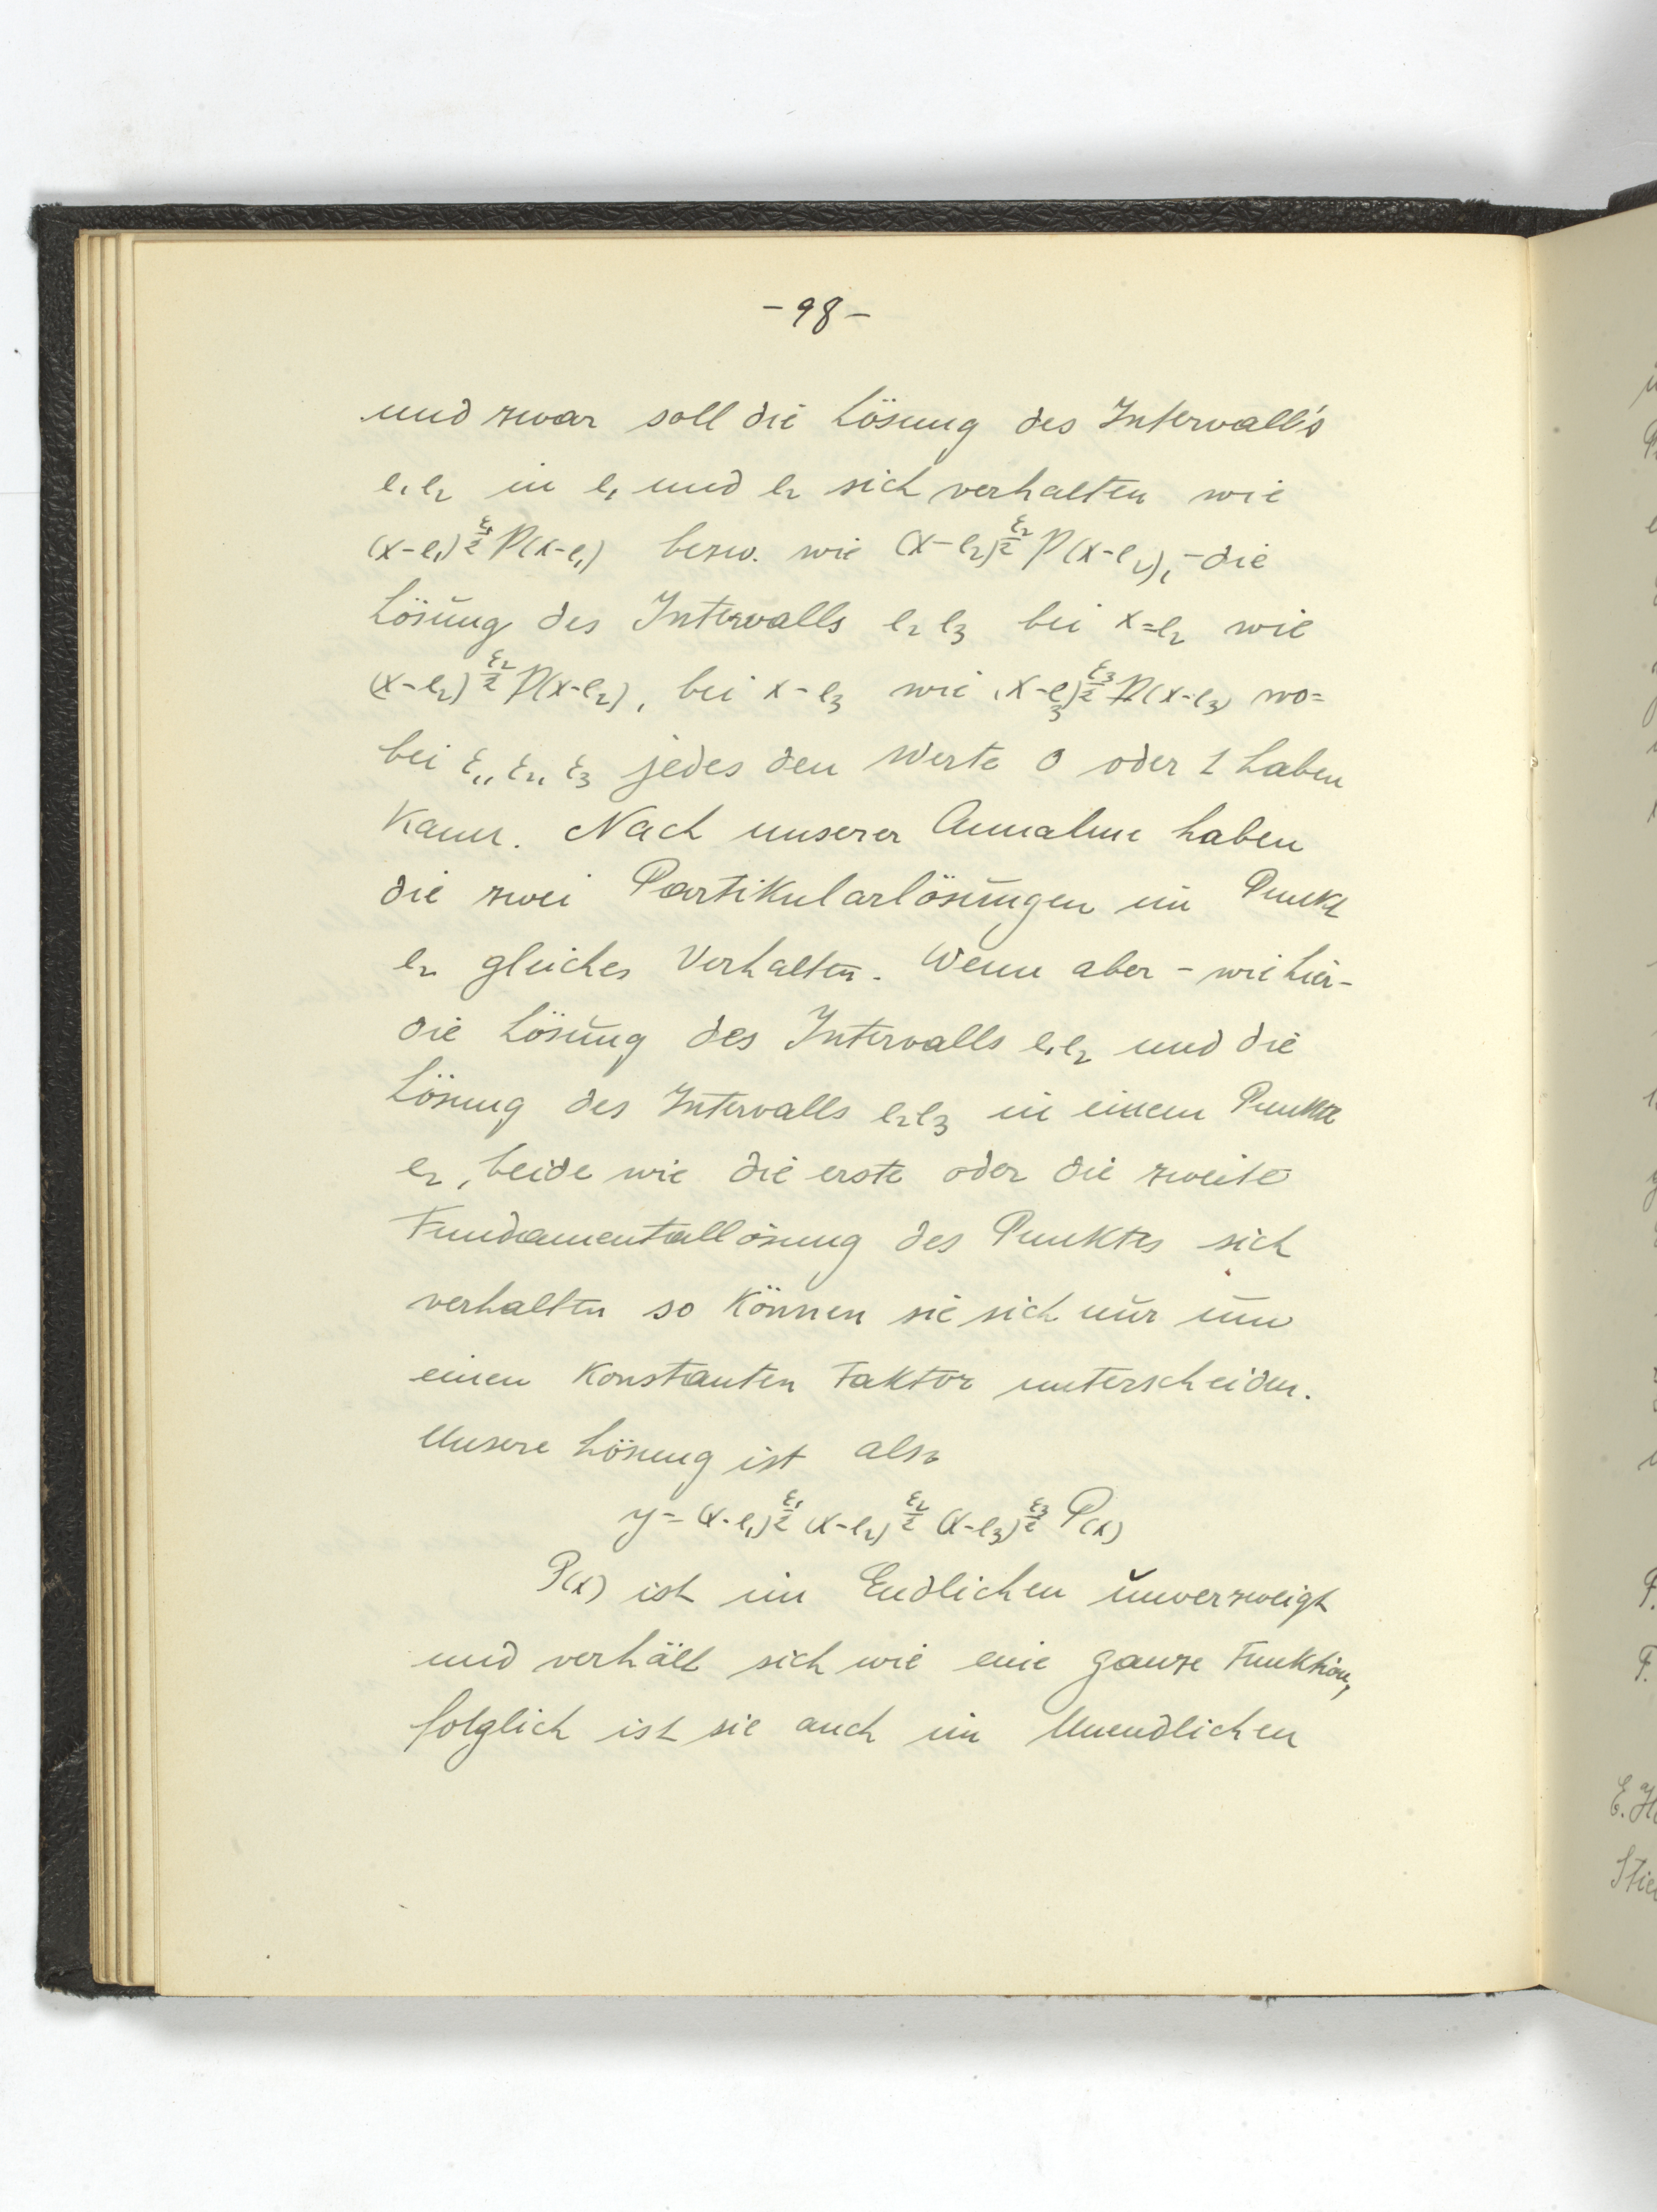 -98-
und zwar soll die Lösung des Intervall's
e₁e₂ in e₁ und e₂ sich verhalten wie
(x-e₁)^(ε₁/2) P(x-e₁) bezw. wie (x-e₂)^(ε₂/2) P(x-e₂), - die
Lösung des Intervalls e₂ e₃ bei x=e₂ wie
(x-e₂)^(ε₂/2) P(x-e₂), bei x-e₃ wie (x-e₃)^(ε₃/2) P(x-e₃) wo=
bei ε₁, ε₂, ε₃ jedes den Werte 0 oder 1 haben
kann. Nach unserer Annahme haben
die zwei Partikularlösungen im Punkt
e₂ gleiches Verhalten. Wenn aber - wie hier -
die Lösung des Intervalls e₁e₂ und die
Lösung des Intervalls e₂e₃ in einem Punkte
e₂, beide wie die erste oder die zweite
Fundamentallösung des Punktes sich
verhalten so können sie sich nur um
einen konstanten Faktor unterscheiden.
Unsere Lösung ist also
y = (x-e₁)^(ε₁/2) (x-e₂)^(ε₂/2) (x-e₃)^(ε₃/2) P(x)
P(x) ist im Endlichen unverzweigt
und verhält sich wie eine ganze Funktion,
folglich ist sie auch im Unendlichen